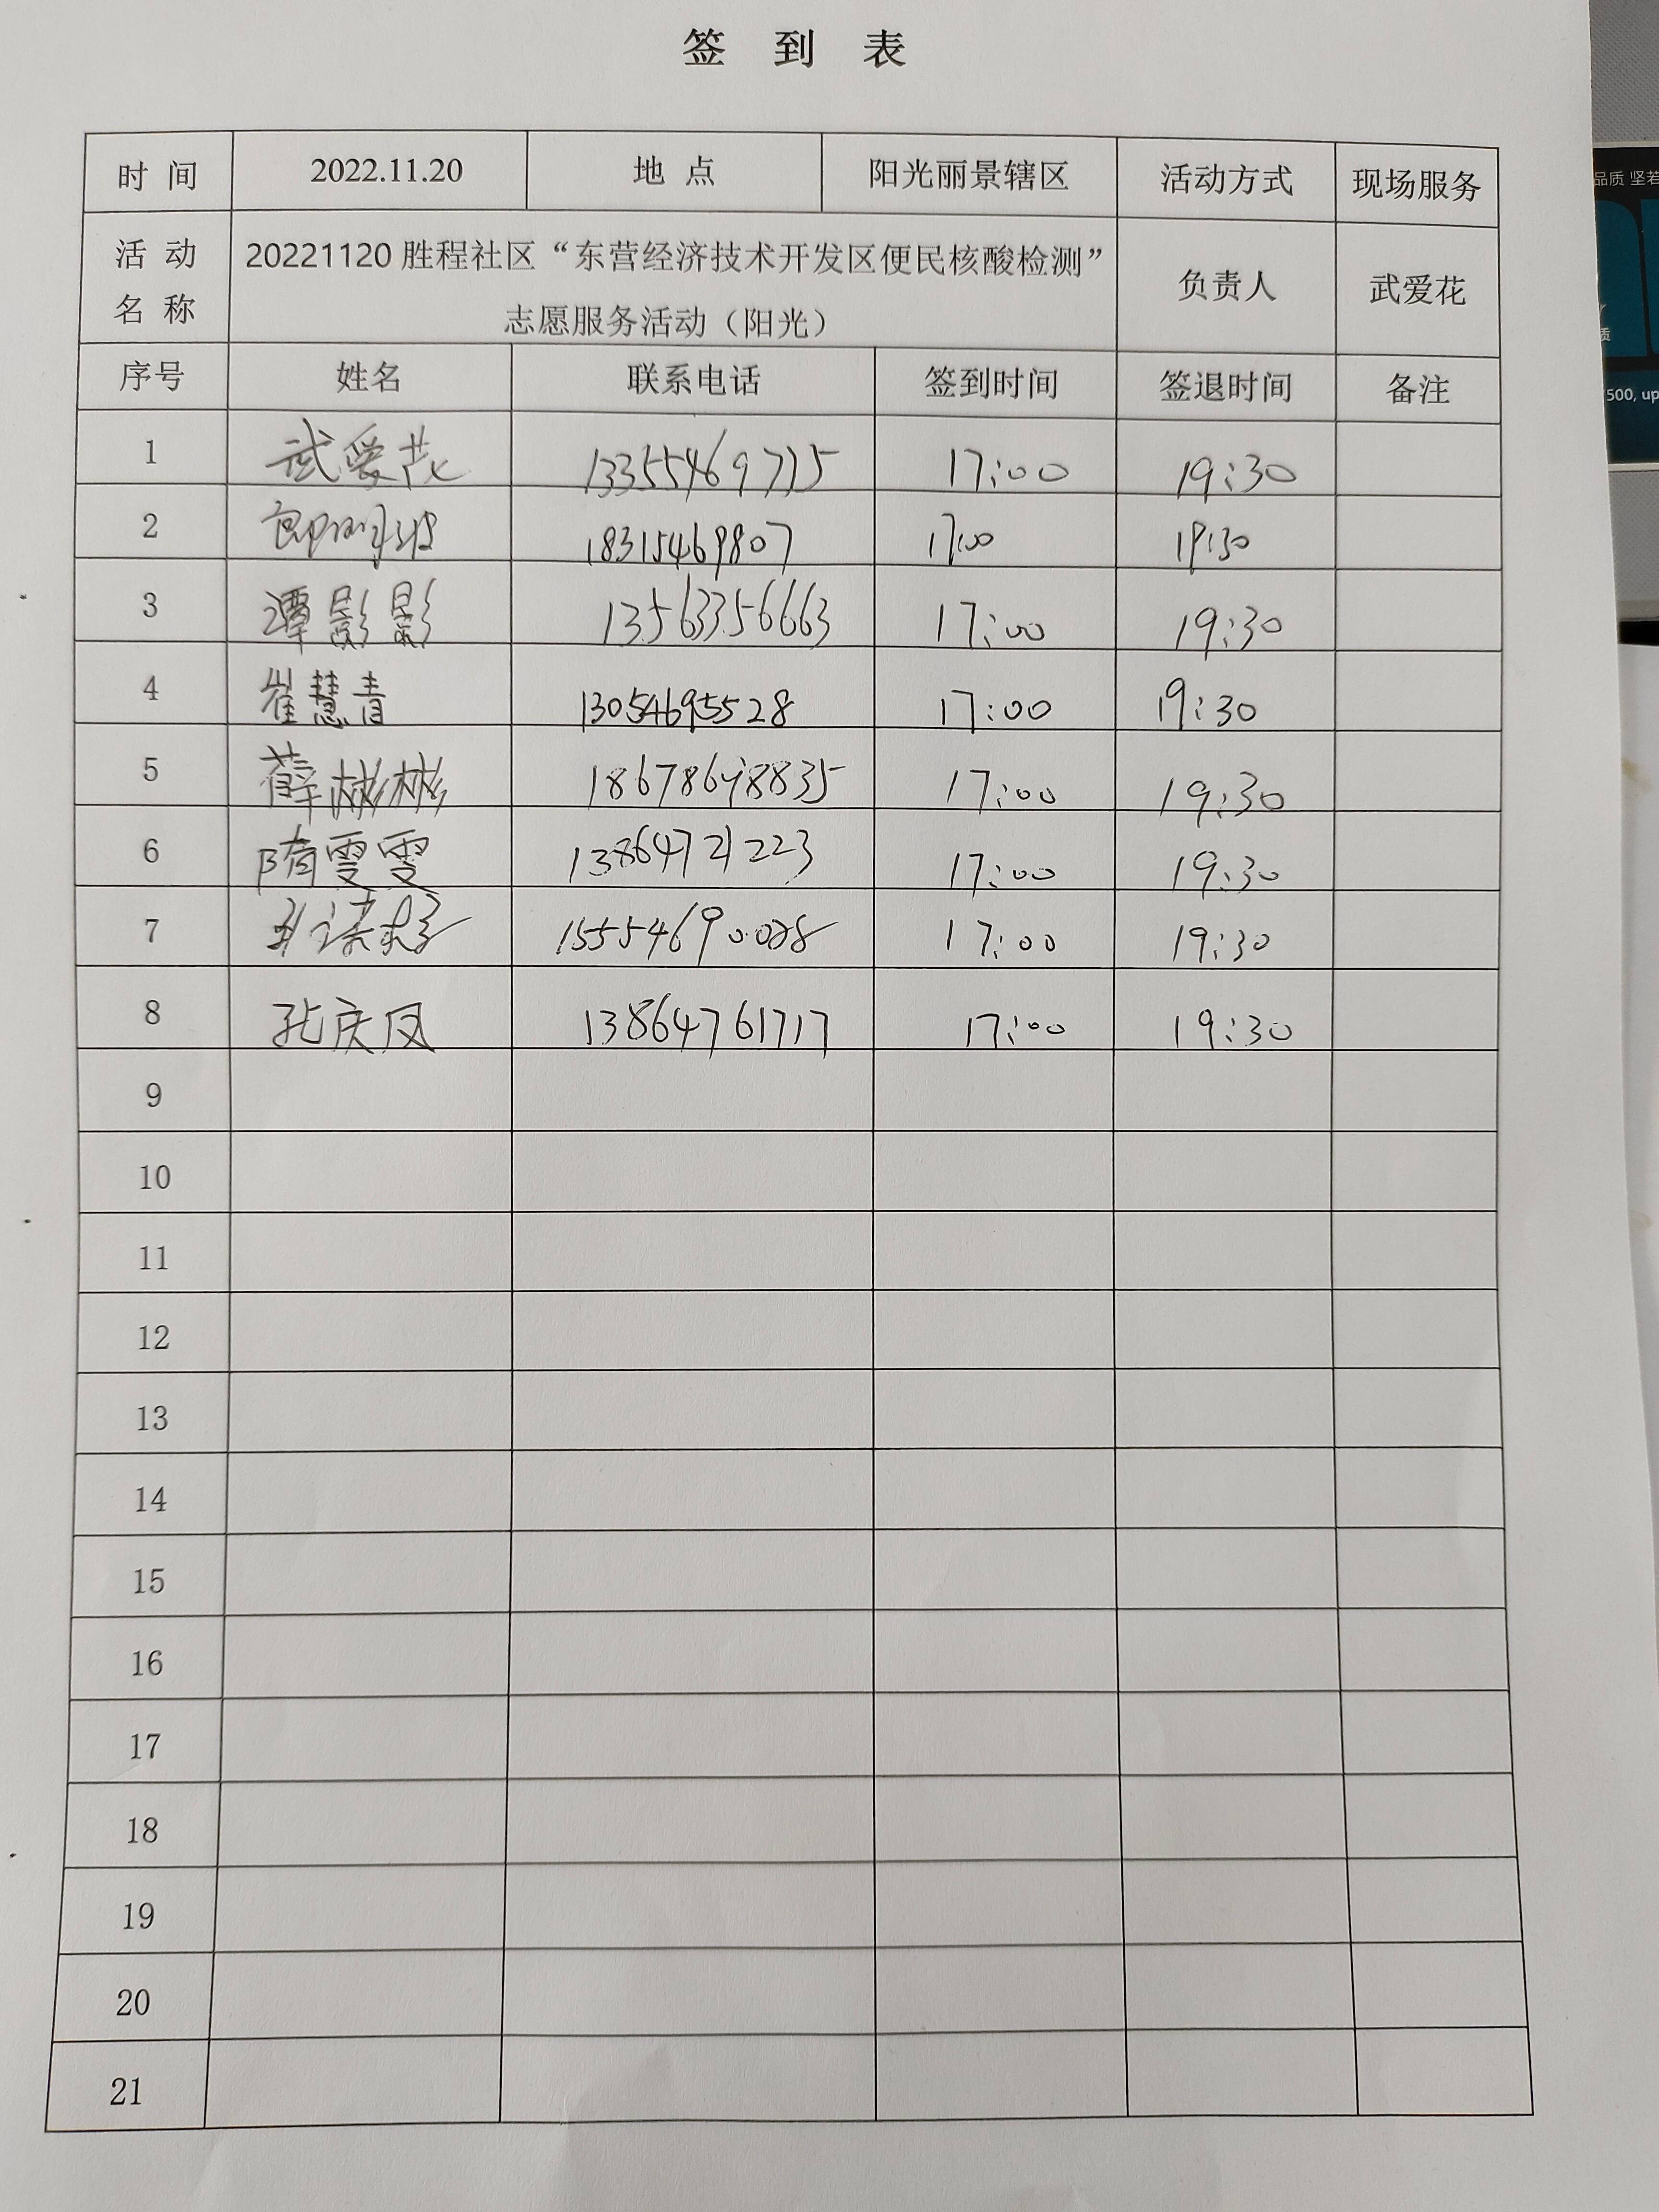 签 到 表
时 间 2022.11.20 地 点 阳光丽景辖区 活动方式 现场服务
活 动 名 称 20221120胜程社区“东营经济技术开发区便民核酸检测” 负责人 武爱花
志愿服务活动（阳光）
序号 姓名 联系电话 签到时间 签退时间 备注
1 武爱花 13355469715 17:00 19:30
2 18315469807 17:00 19:30
3 谭影影 13563356663 17:00 19:30
4 崔慧青 13054695528 17:00 19:30
5 薛彬彬 17:00 19:30
6 隋雯雯 17:00 19:30
7 17:00 19:30
8 孔庆凤 13864761717 17:00 19:30
9
10
11
12
13
14
15
16
17
18
19
20
21
品质 坚若
质
500, up